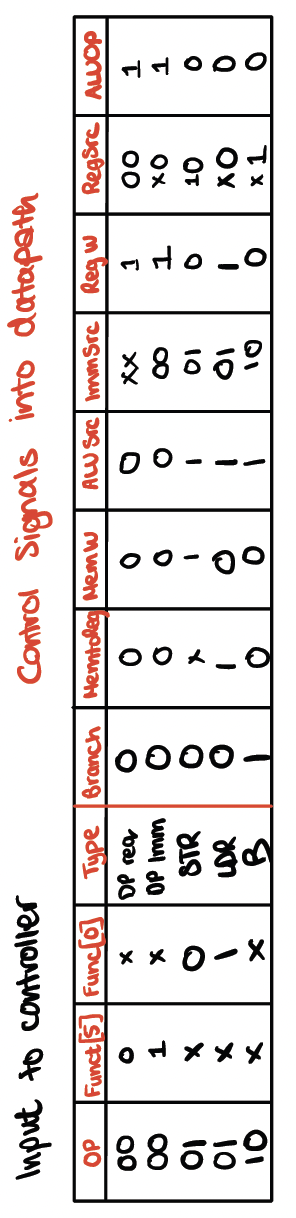 Input to controller Control Signals into datapath
OP Funct[5] Func[0] Type Branch MemtoReg MemW ALU Src ImmSrc Reg W RegSrc ALUOP
00 0 x DP reg 0 0 0 0 xx 1 00 1
00 1 x DP Imm 0 0 0 0 00 1 x0 1
01 x 0 STR 0 x 1 1 01 0 10 0
01 x 1 LDR 0 1 0 1 01 1 x0 0
10 x x B 1 0 0 1 10 0 x1 0